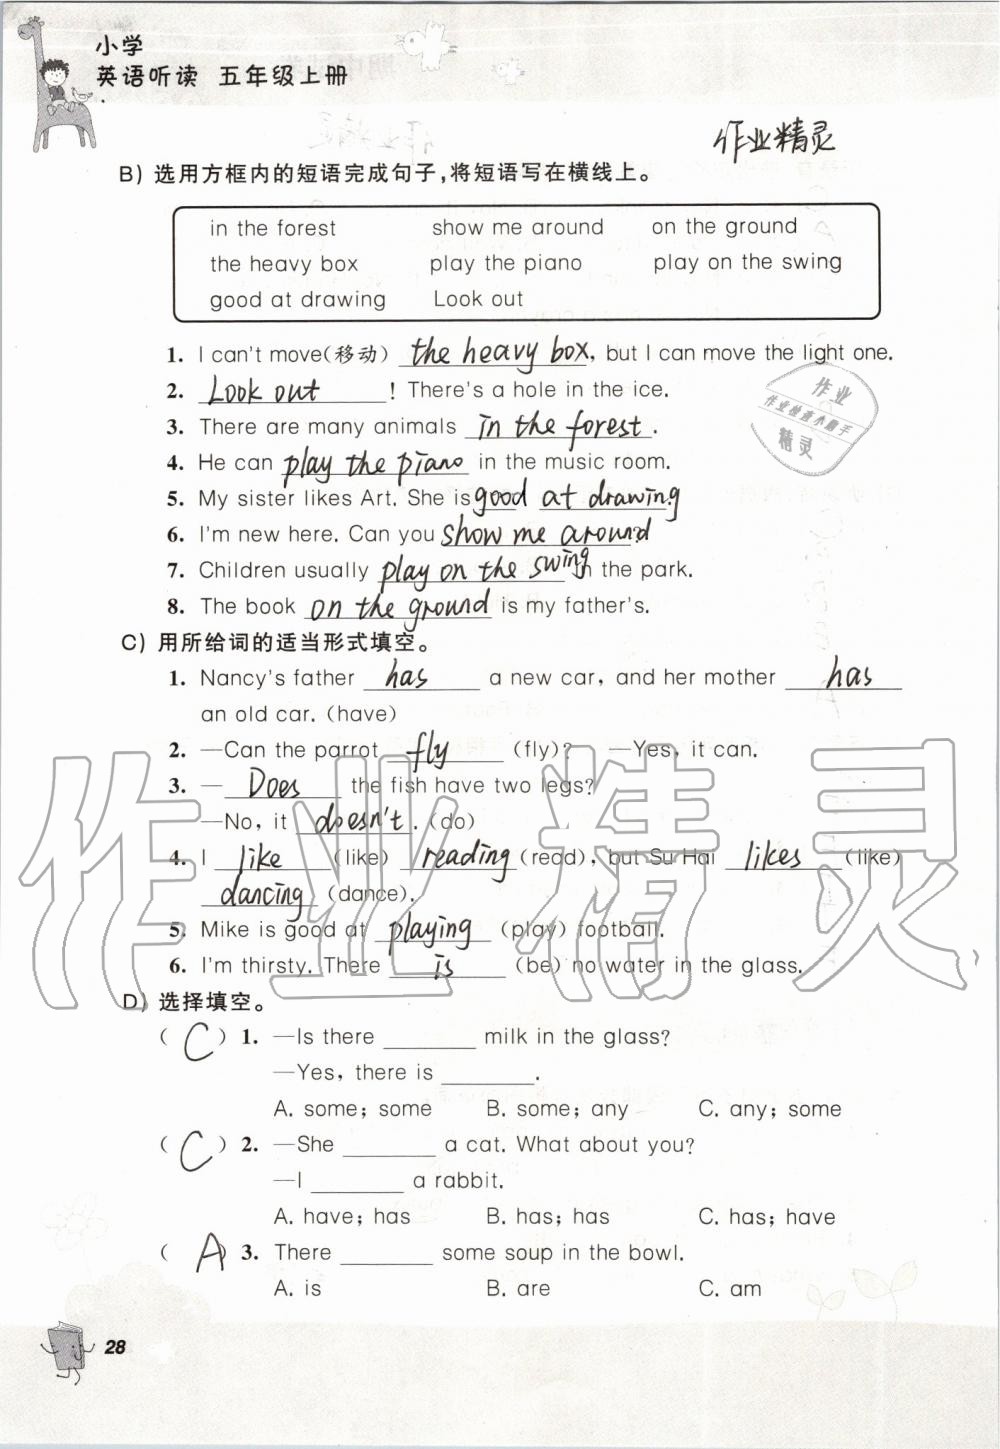 小学
英语听读 五年级上册
作业精灵
B) 选用方框内的短语完成句子,将短语写在横线上。
in the forest show me around on the ground
the heavy box play the piano play on the swing
good at drawing Look out
1. I can't move(移动) the heavy box, but I can move the light one.
2. Look out! There's a hole in the ice.
3. There are many animals in the forest.
4. He can play the piano in the music room.
5. My sister likes Art. She is good at drawing
6. I'm new here. Can you show me around
7. Children usually play on the swing in the park.
8. The book on the ground is my father's.
作业
作业检查小助手
精灵
C) 用所给词的适当形式填空。
1. Nancy's father has a new car, and her mother has
an old car. (have)
2. —Can the parrot fly (fly)? —Yes, it can.
3. —Does the fish have two legs?
—No, it doesn't. (do)
4. I like (like) reading (read), but Su Hai likes (like)
dancing (dance).
5. Mike is good at playing (play) football.
6. I'm thirsty. There is (be) no water in the glass.
作业精灵
D) 选择填空。
( C ) 1. —Is there ______ milk in the glass?
—Yes, there is ______.
A. some; some B. some; any C. any; some
( C ) 2. —She ______ a cat. What about you?
—I ______ a rabbit.
A. have; has B. has; has C. has; have
( A ) 3. There ______ some soup in the bowl.
A. is B. are C. am
28